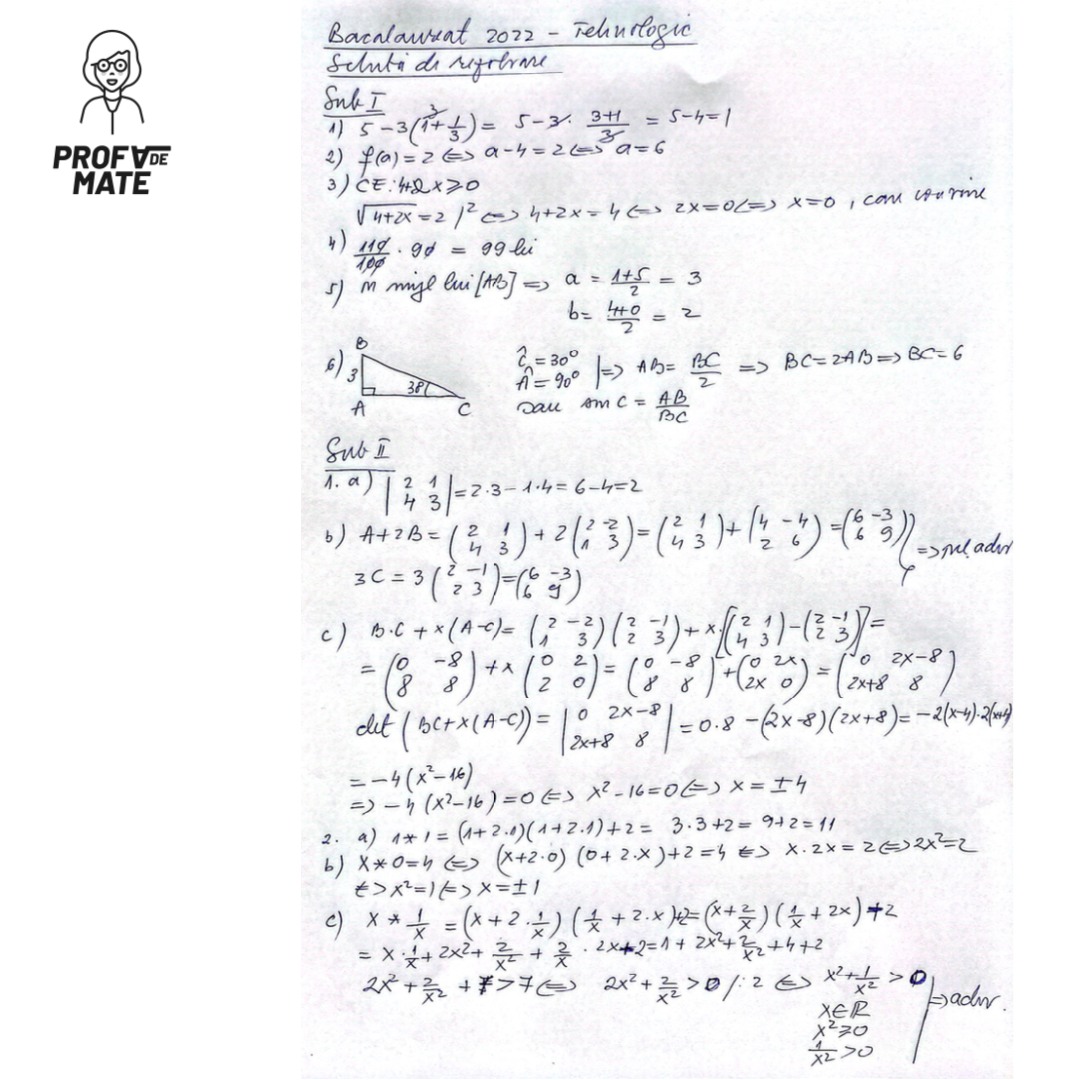 PROFA DE
MATE
Bacalaureat 2022 - Tehnologic
Soluții de rezolvare
Sub I
1) 5-3(1+1/3) = 5-3·(3+1)/3 = 5-4=1
2) f(a)=2 ⇔ a-4=2 ⇔ a=6
3) CE: 4+2x≥0
√(4+2x)=2 |² ⇔ 4+2x=4 ⇔ 2x=0 ⇔ x=0, care convine
4) 110/100 · 90 = 99 lei
5) M mijl lui [AB] => a = (1+5)/2 = 3
b = (4+0)/2 = 2
6) B
3
A
30°
C
Ĉ=30°
Â=90° |=> AB = BC/2 => BC=2AB => BC=6
sau sin C = AB/BC
Sub II
1. a) |2 1; 4 3| = 2·3-1·4=6-4=2
b) A+2B = (2 1; 4 3) + 2(2 -2; 1 3) = (2 1; 4 3) + (4 -4; 2 6) = (6 -3; 6 9)
=> rel adv
3C = 3(2 -1; 2 3) = (6 -3; 6 9)
c) B·C + x(A-C) = (2 -2; 1 3)(2 -1; 2 3) + x·[(2 1; 4 3)-(2 -1; 2 3)] =
= (0 -8; 8 8) + x(0 2; 2 0) = (0 -8; 8 8) + (0 2x; 2x 0) = (0 2x-8; 2x+8 8)
det (BC+x(A-C)) = |0 2x-8; 2x+8 8| = 0·8-(2x-8)(2x+8) = -2(x-4)·2(x+4)
= -4(x²-16)
=> -4(x²-16)=0 ⇔ x²-16=0 ⇔ x=±4
2. a) 1*1 = (1+2·1)(1+2·1)+2 = 3·3+2 = 9+2=11
b) x*0=4 ⇔ (x+2·0)(0+2·x)+2=4 ⇔ x·2x=2 ⇔ 2x²=2
⇔ x²=1 ⇔ x=±1
c) x * 1/x = (x+2·1/x)(1/x+2·x)+2 = (x+2/x)(1/x+2x)+2
= x·1/x + 2x² + 2/x² + 2/x · 2x+2 = 1+2x²+2/x²+4+2
2x²+2/x²+7>7 ⇔ 2x²+2/x²>0 /:2 ⇔ x²+1/x²>0
x∈ℝ
=> adv.
x²≥0
1/x²>0